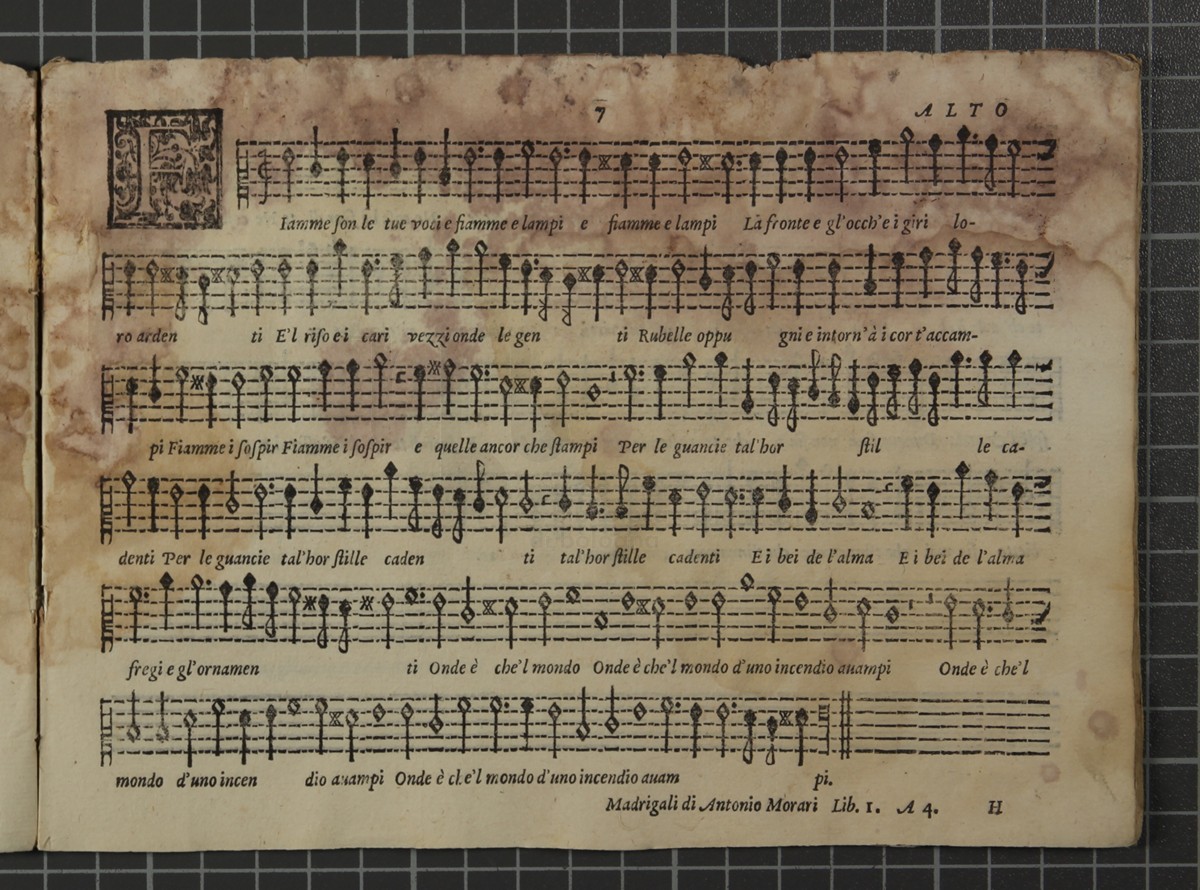 7 ALTO
FIamme ſon le tue voci e fiamme e lampi e fiamme e lampi La fronte e gl'occh'e i giri lo-
ro arden ti E'l riſo e i cari vezzi onde le gen ti Rubelle oppu gni e intorn'à i cor t'accam-
pi Fiamme i ſoſpir Fiamme i ſoſpir e quelle ancor che ſtampi Per le guancie tal'hor ſtil le ca-
denti Per le guancie tal'hor ſtille caden ti tal'hor ſtille cadenti E i bei de l'alma E i bei de l'alma
fregi e gl'ornamen ti Onde è che'l mondo Onde è che'l mondo d'uno incendio auampi Onde è che'l
mondo d'uno incen dio auampi Onde è che'l mondo d'uno incendio auam pi.
Madrigali di Antonio Morari Lib. 1. A 4. H